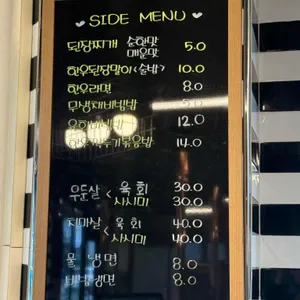 SIDE MENU
된장찌개 순한맛 5.0
매운맛
한우된장말이<술밥> 10.0
한우라면 8.0
무생채비빔밥 5.0
육회비빔밥 12.0
한우깍두기볶음밥 14.0
우둔살 < 육회 30.0
사시미 30.0
치마살 < 육회 40.0
사시미 40.0
물냉면 8.0
비빔냉면 8.0